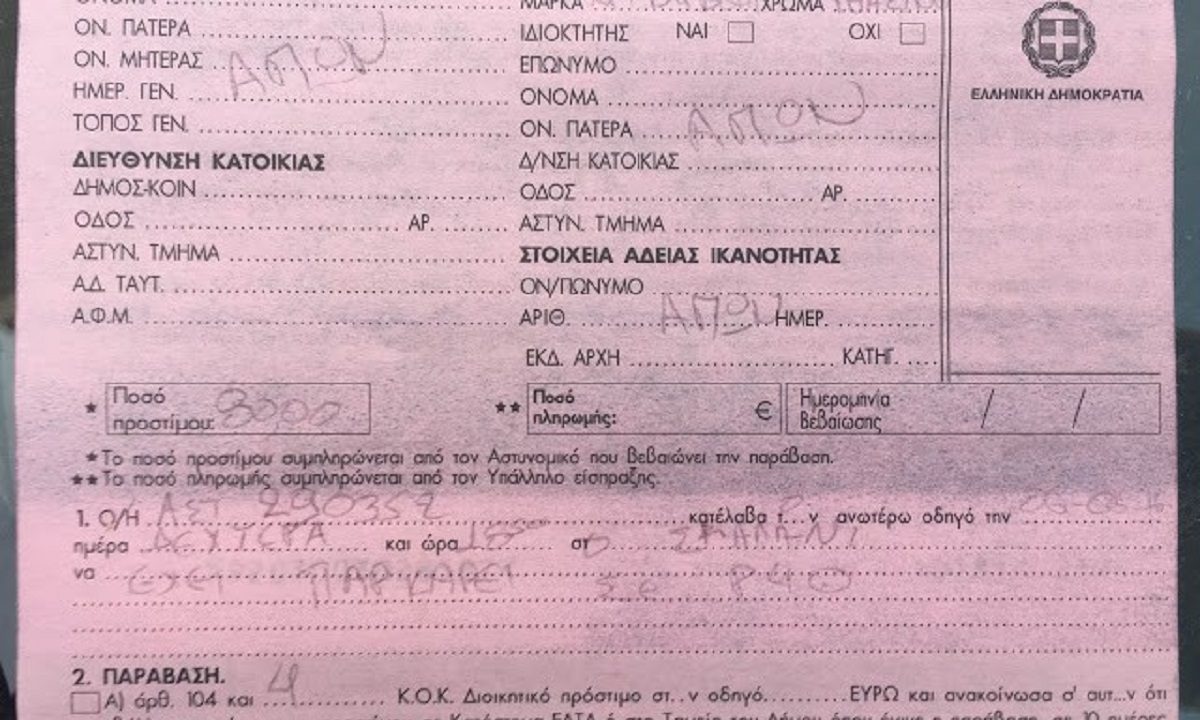 ΜΑΡΚΑ ΧΡΩΜΑ
ΟΝ. ΠΑΤΕΡΑ
ΙΔΙΟΚΤΗΤΗΣ ΝΑΙ ΟΧΙ
ΟΝ. ΜΗΤΕΡΑΣ ΑΠΩΝ
ΕΠΩΝΥΜΟ
ΗΜΕΡ. ΓΕΝ.
ΟΝΟΜΑ
ΕΛΛΗΝΙΚΗ ΔΗΜΟΚΡΑΤΙΑ
ΤΟΠΟΣ ΓΕΝ.
ΟΝ. ΠΑΤΕΡΑ ΑΠΩΝ
ΔΙΕΥΘΥΝΣΗ ΚΑΤΟΙΚΙΑΣ
Δ/ΝΣΗ ΚΑΤΟΙΚΙΑΣ
ΔΗΜΟΣ-ΚΟΙΝ
ΟΔΟΣ ΑΡ.
ΟΔΟΣ ΑΡ.
ΑΣΤΥΝ. ΤΜΗΜΑ
ΑΣΤΥΝ. ΤΜΗΜΑ
ΣΤΟΙΧΕΙΑ ΑΔΕΙΑΣ ΙΚΑΝΟΤΗΤΑΣ
ΑΔ. ΤΑΥΤ.
ΟΝ/ΠΩΝΥΜΟ
Α.Φ.Μ.
ΑΡΙΘ. ΑΠΩΝ ΗΜΕΡ.
ΕΚΔ. ΑΡΧΗ ΚΑΤΗΓ.
* Ποσό προστίμου:
** Ποσό πληρωμής: €
Ημερομηνία Βεβαίωσης / /
*Το ποσό προστίμου συμπληρώνεται από τον Αστυνομικό που βεβαιώνει την παράβαση.
**Το ποσό πληρωμής συμπληρώνεται από τον Υπάλληλο είσπραξης.
1. Ο/Η ΑΣΤ 290352 κατέλαβα τ...ν ανωτέρω οδηγό την
ημέρα ΔΕΥΤΕΡΑ και ώρα στ
να ΕΧΕΙ ΠΑΡΚΑΡΕΙ ΣΕ
2. ΠΑΡΑΒΑΣΗ.
Α) άρθ. 104 και 4 Κ.Ο.Κ. Διοικητικό πρόστιμο στ...ν οδηγό ΕΥΡΩ και ανακοίνωσα σ' αυτ...ν ότι